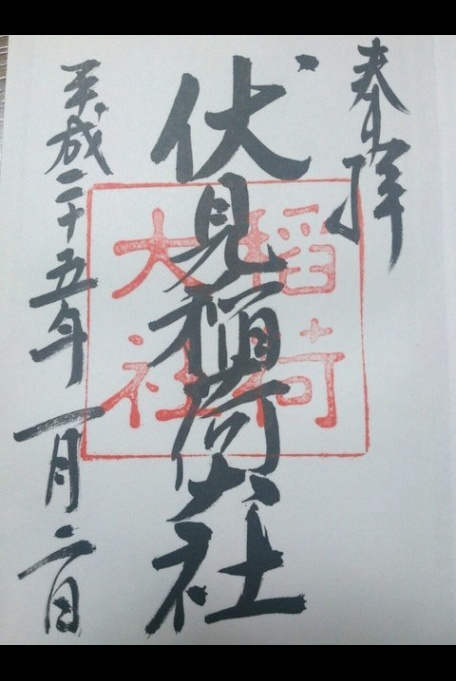 奉拝
伏見稲荷大社
稲荷
大社
平成二十五年一月二日